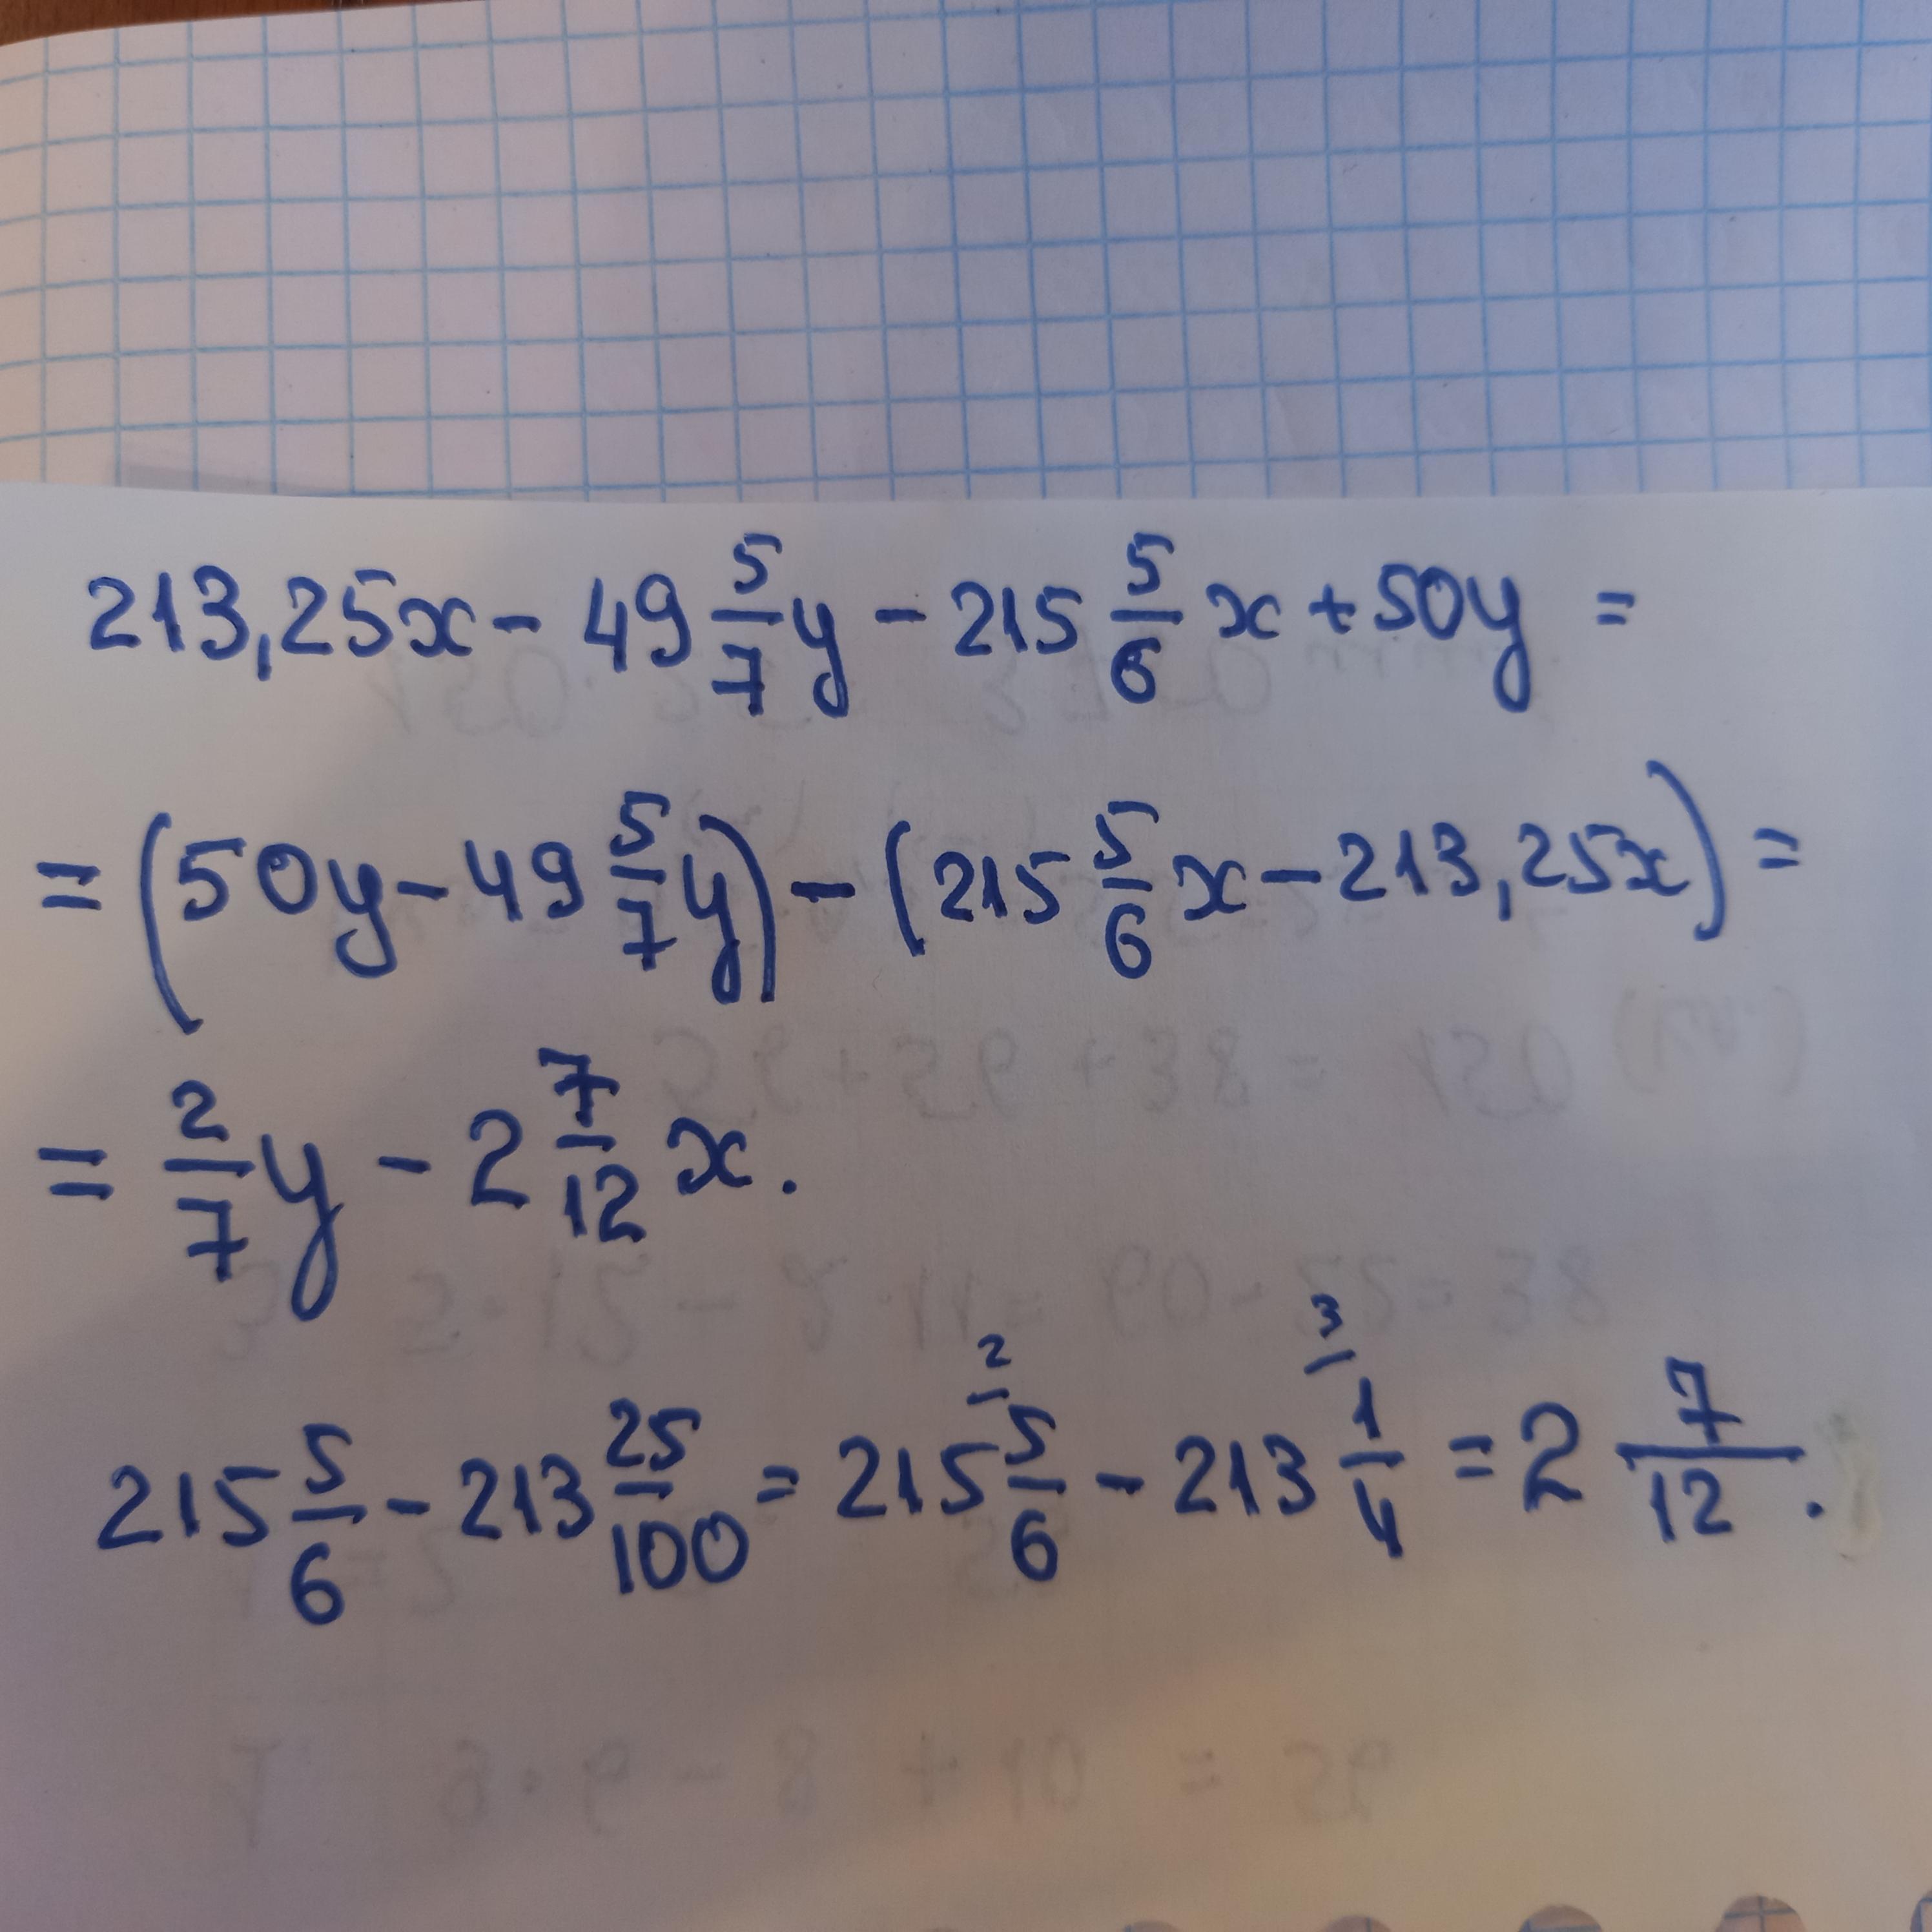 213,25x - 49 5/7 y - 215 5/6 x + 50y =
= (50y - 49 5/7 y) - (215 5/6 x - 213,25x) =
= 2/7 y - 2 7/12 x.
215 5/6 - 213 25/100 = 215 5/6 ² - 213 1/4 ³ = 2 7/12.